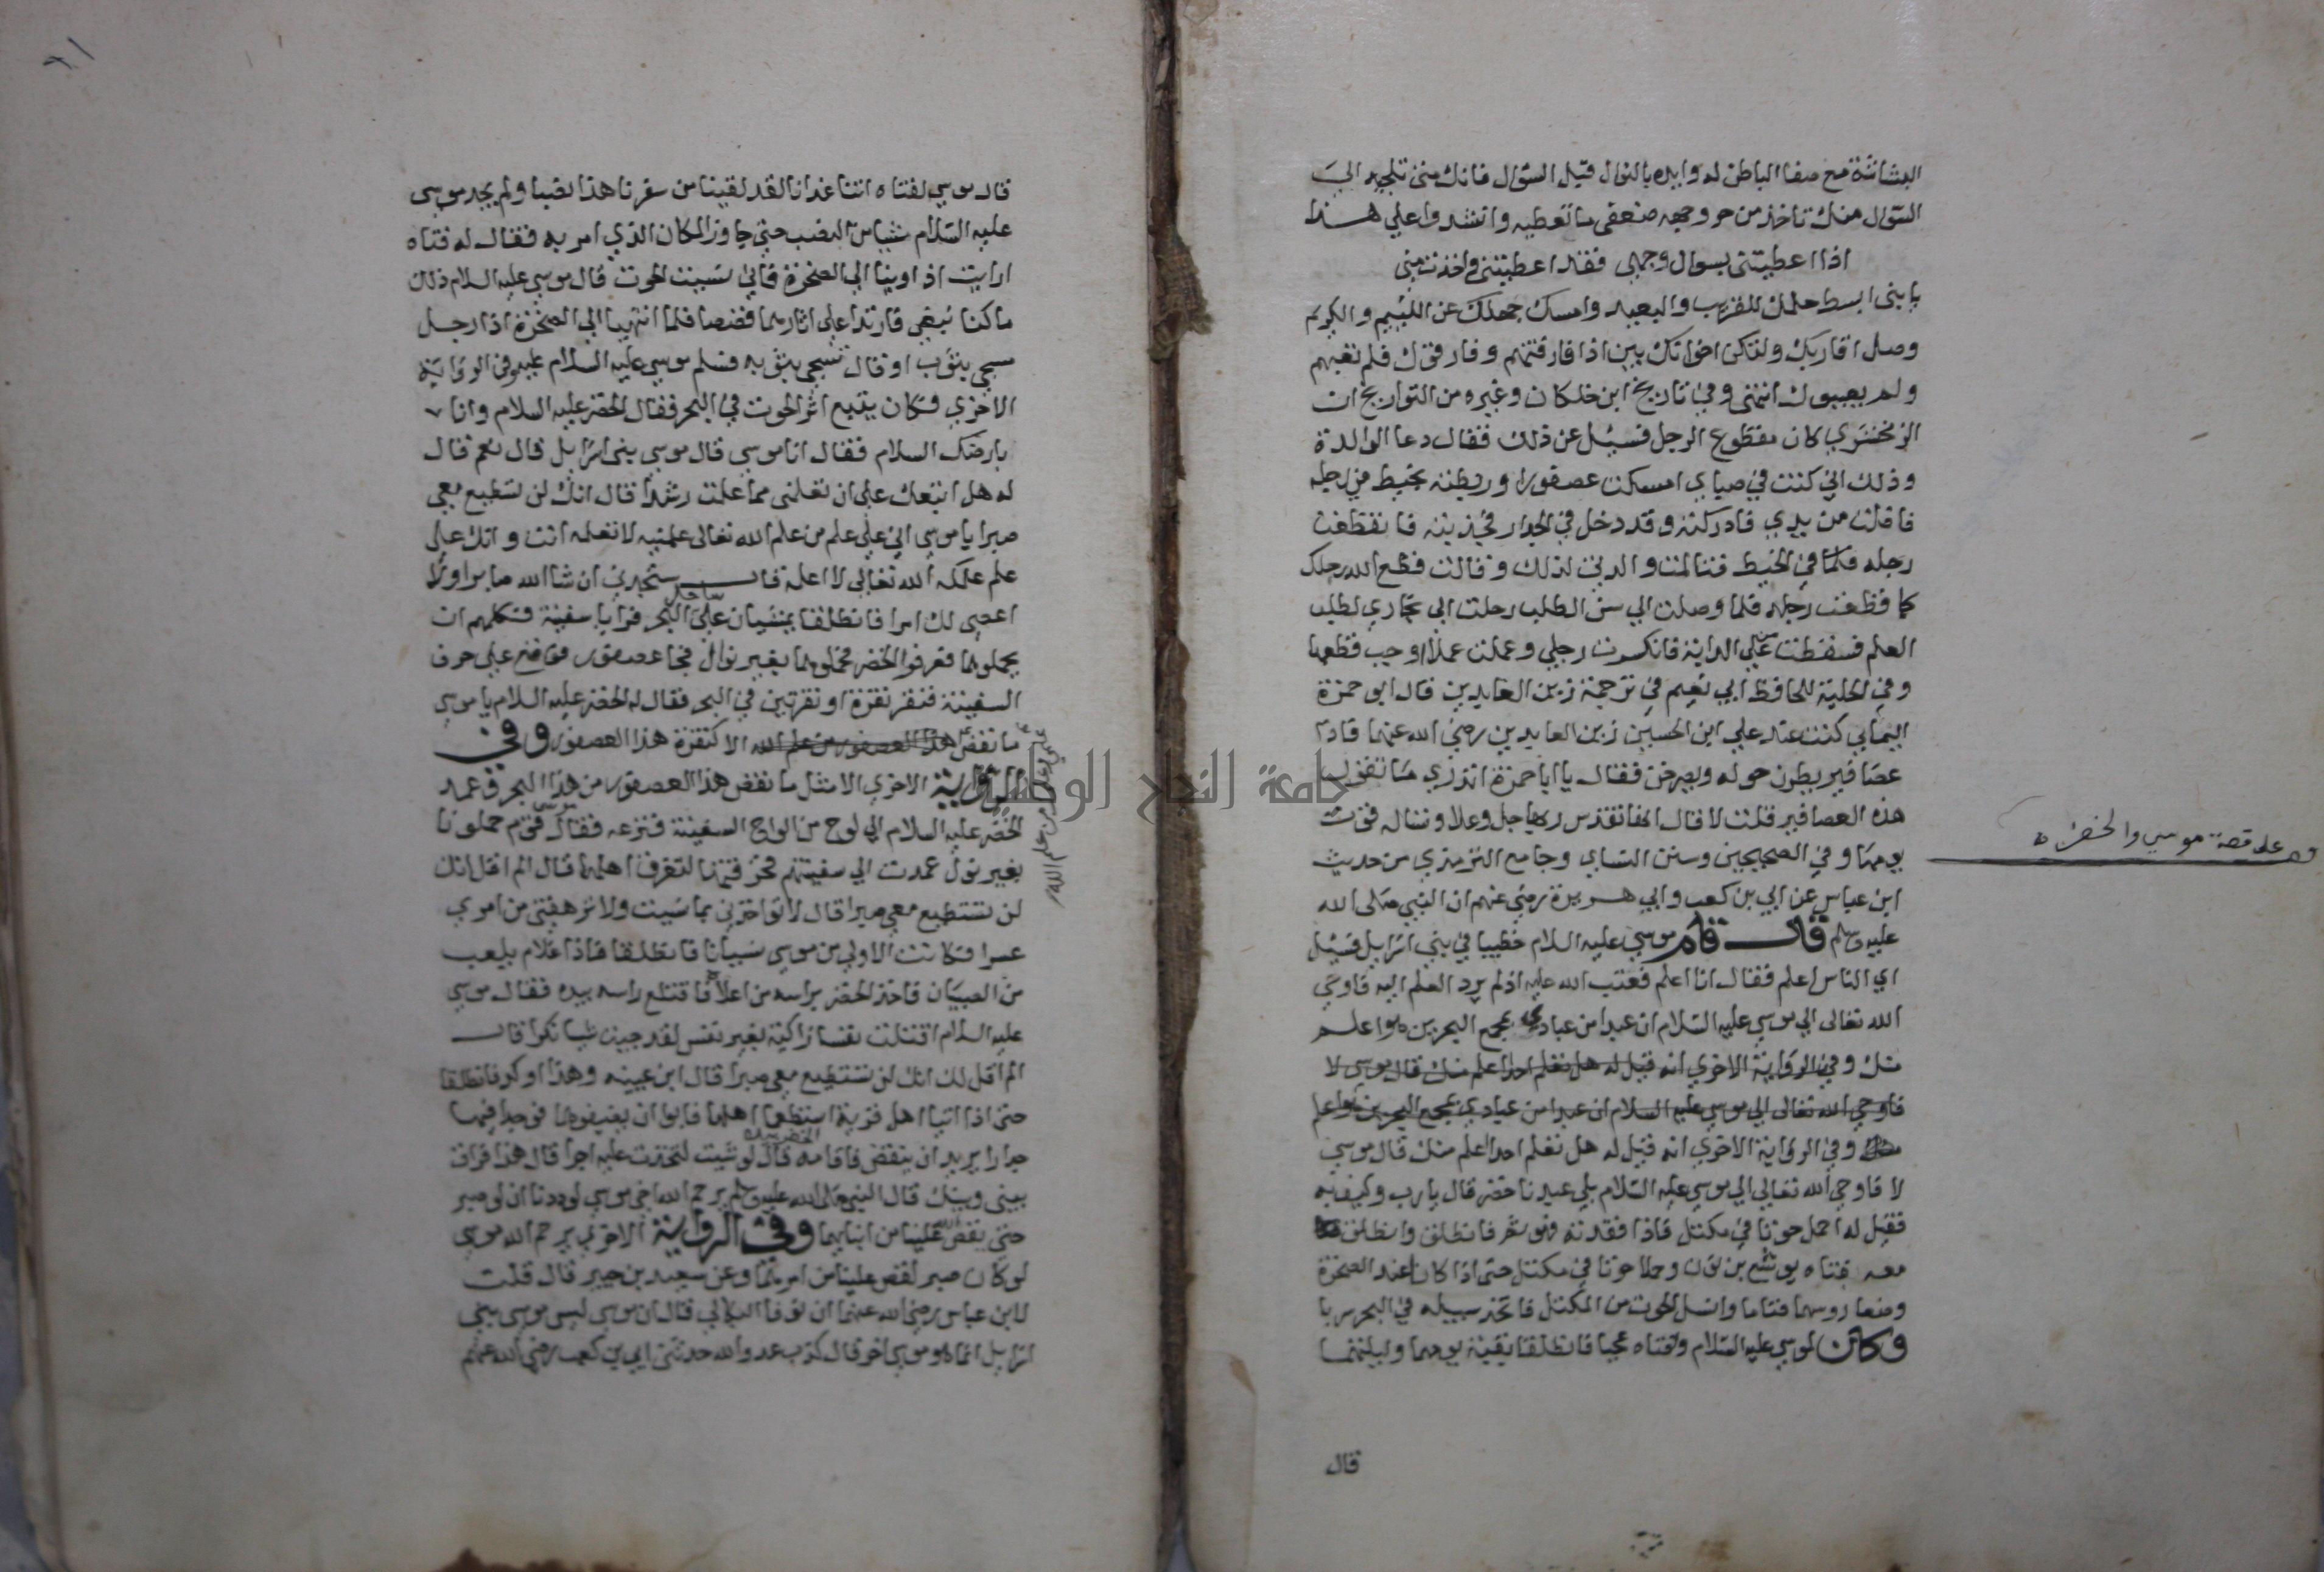 البشاشة مع صفا الباطن له وابده بالنوال قبل السوال فانك متي تلجيه الي
السوال منك تاخذ من حر وجهه ضعفي ما تعطيه وانشدوا علي هذا
اذا اعطيتني بسوال وجهي فقد اعطيتني واخذت مني
يا بني ابسط حلمك للقريب والبعيد وامسك جهلك عن اللئيم والكريم
وصل اقاربك ولتكن اخوانك بين اذا فارقتهم وفارقوك فلم تعبهم
ولم يعيبوك انتهي وفي تاريخ ابن خلكان وغيره من التواريخ ان
الزمخشري كان مقطوع الرجل فسئل عن ذلك فقال دعا الوالدة
وذلك اني كنت في صباي امسكت عصفورا وربطته بخيط في رجله
فافلت من يدي فادركته وقد دخل في الجدار فجذبته فانقطعت
رجله في الخيط فتالمت والدتي لذلك وقالت قطع الله رجلك
كما قطعت رجله فلما وصلت الي سن الطلب رحلت الي بخاري لطلب
العلم فسقطت عن الدابة فانكسرت رجلي وعملت عملا اوجب قطعها
وفي الحلية للحافظ ابي نعيم في ترجمة زين العابدين قال ابو حمزة
اليماني كنت عند علي ابن الحسين زين العابدين رضي الله عنهما فاذا
عصافير يطرن حوله ويصرخن فقال يا ابا حمزة اتدري ما تقول
هذه العصافير قلت لا قال انها تقدس ربها جل وعلا وتساله قوت
يومها وفي الصحيحين وسنن النساي وجامع الترمذي من حديث
ابن عباس عن ابي بن كعب وابي هريرة رضي عنهم ان النبي صلى الله
عليه وسلم قال قام موسي عليه السلام خطيبا في بني اسرايل فسئل
اي الناس اعلم فقال انا اعلم فعتب الله عليه اذ لم يرد العلم اليه فاوحي
الله تعالى الي موسي عليه السلام ان عبدا من عبادي بمجمع البحرين هوا علم
منك وفي الرواية الاخري انه قيل له هل تعلم احدا اعلم منك قال موسي لا
فاوحي الله تعالى الي موسي عليه السلام ان عبدا من عبادي بمجمع البحرين هو اعلم
منك وفي الرواية الاخري انه قيل له هل تعلم احدا اعلم منك قال موسي
لا فاوحي الله تعالي الي موسي عليه السلام بلي عبدنا خضر قال يا رب وكيف به
فقيل له احمل حوتا في مكتل فاذا فقدته فهو ثم فانطلق وانطلق
معه فتاه يوشع بن نون وحملا حوتا في مكتل حتى اذا كان عند الصخرة
وضعا روسهما فناما وانسل الحوت من المكتل فاتخذ سبيله في البحر سربا
وكان لموسي عليه السلام ولفتاه عجبا فانطلقا بقية يومهما وليلتهما
قال
قصة موسي والخضر
قال موسي لفتاه اتنا غدانا لقد لقينا من سفرنا هذا نصبا ولم يجد موسي
عليه السلام شيا من النصب حتي جاوز المكان الذي امر به فقال له فتاه
ارايت اذ اوينا الي الصخرة فاني نسيت الحوت قال موسي عليه السلام ذلك
ما كنا نبغي فارتدا علي اثارهما قصصا فلما انتهيا الي الصخرة اذا رجل
مسجي بثوب او قال تسجي بثوبه فسلم موسي عليه السلام عليه وفي الرواية
الاخري فكان يتبع اثر الحوت في البحر فقال الخضر عليه السلام وانا
بارضك السلام فقال انا موسي قال موسي بني اسرايل قال نعم قال
له هل اتبعك علي ان تعلمني مما علمت رشدا قال انك لن تستطيع معي
صبرا يا موسي اني علي علم من علم الله تعالى علمنيه لا تعلمه انت وانك علي
علم علمكه الله تعالي لا اعلمه قال ستجدني ان شا الله صابرا ولا
ساحل
اعصي لك امرا فانطلقا يمشيان علي البحر فرايا سفينة فكلمهم ان
يحملوهما فعرفوا الخضر فحملوهما بغير نوال فجا عصفور فوقع علي حرف
السفينة فنقر نقرة او نقرتين في البحر فقال له الخضر عليه السلام يا موسي
ما نقص هذا العصفور من علم الله الا كنقرة هذا العصفور وفي
علمي وعلمك من علم الله
الرواية الاخري الا مثل ما نقص هذا العصفور من هذا البحر فعمد
الخضر عليه السلام الي لوح من الواح السفينة فنزعه فقال موسي قوم حملونا
بغير نول عمدت الي سفينتهم فخرقتها لتغرق اهلها قال الم اقل انك
لن تستطيع معي صبرا قال لا تواخذني بما نسيت ولا ترهقني من امري
عسرا فكانت الاولي من موسي نسيانا فانطلقا فاذا غلام يلعب
من الصبيان فاخذ الخضر براسه من اعلاه فاقتلع راسه بيده فقال موسي
عليه السلام اقتلت نفسا زاكية بغير نفس لقد جيت شيا نكرا قال
الم اقل لك انك لن تستطيع معي صبرا قال ابن عيينه وهذا اوكد فانطلقا
حتى اذا اتيا اهل قرية استطعما اهلها فابوا ان يضيفوهما فوجدا فيها
الخضر بيده
جدارا يريد ان ينقض فاقامه قال لو شيت لتخذت عليه اجرا قال هذا فراق
بيني وبينك قال النبي صلى الله عليه وسلم يرحم الله اخي موسي لوددنا ان لو صبر
حتي يقص الله علينا من انبايهما وفي الرواية الاخري يرحم الله موسي
لو كان صبر لقص علينا من امرهما وعن سعيد بن جبير قال قلت
لابن عباس رضي الله عنهما ان نوفا البكالي قال ان موسي ليس موسي بني
اسرايل انما هو موسي اخر قال كذب عدو الله حدثني ابي بن كعب رضي الله عنهم
جامعة النجاح الوطنية